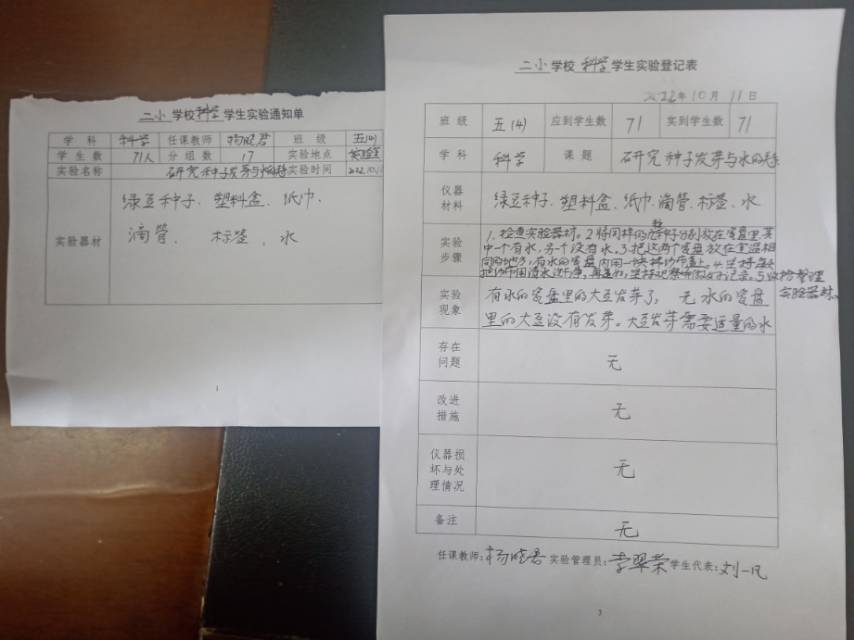 二小 学校 科学 学生实验通知单
学 科 科学 任课教师 杨晓君 班 级 五(4)
学生数 71人 分组数 17 实验地点 实验室
实验名称 研究种子发芽与水的关系 实验时间 2022.10.1
实验器材
绿豆种子、塑料盒、纸巾、
滴管、 标签、水
1
二小 学校 科学 学生实验登记表
2022年10月11日
班 级 五(4) 应到学生数 71 实到学生数 71
学 科 科学 课 题 研究种子发芽与水的关系
仪器材料 绿豆种子、塑料盒、纸巾、滴管、标签、水
实验步骤
1、检查实验器材。2将同样的种子分别放在容皿里其
中一个有水,另一个没有水。3、把这两个容皿放在室温相
同的地方,有水的容皿内用一块
把 用清水 5、 整理
实验器材。
实验现象
有水的容皿里的大豆发芽了, 无水的容皿
里的大豆没有发芽。大豆发芽需要适量的水
存在问题 无
改进措施 无
仪器损坏与处理情况 无
备注 无
任课教师: 杨晓君 实验管理员: 李翠荣 学生代表: 刘一凡